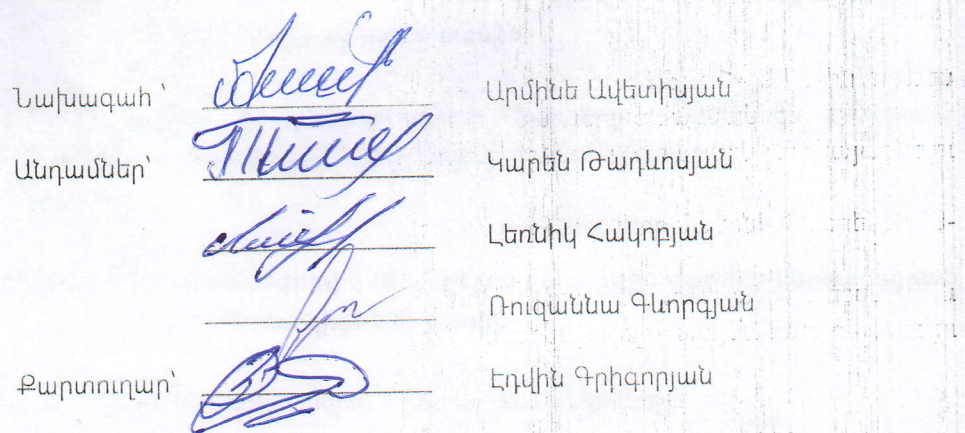 Նախագահ՝ Արմինե Ավետիսյան
Անդամներ՝ Կարեն Թադևոսյան
Լեռնիկ Հակոբյան
Ռուզաննա Գևորգյան
Քարտուղար՝ Էդվին Գրիգորյան